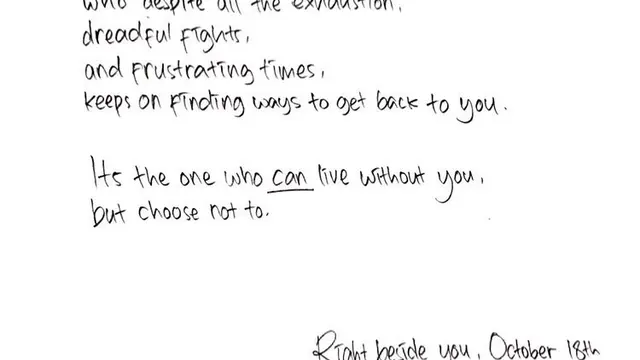 who despite all the exhaustion,
dreadful fights,
and frustrating times,
keeps on finding ways to get back to you.
Its the one who can live without you,
but choose not to.
Right beside you, October 18th